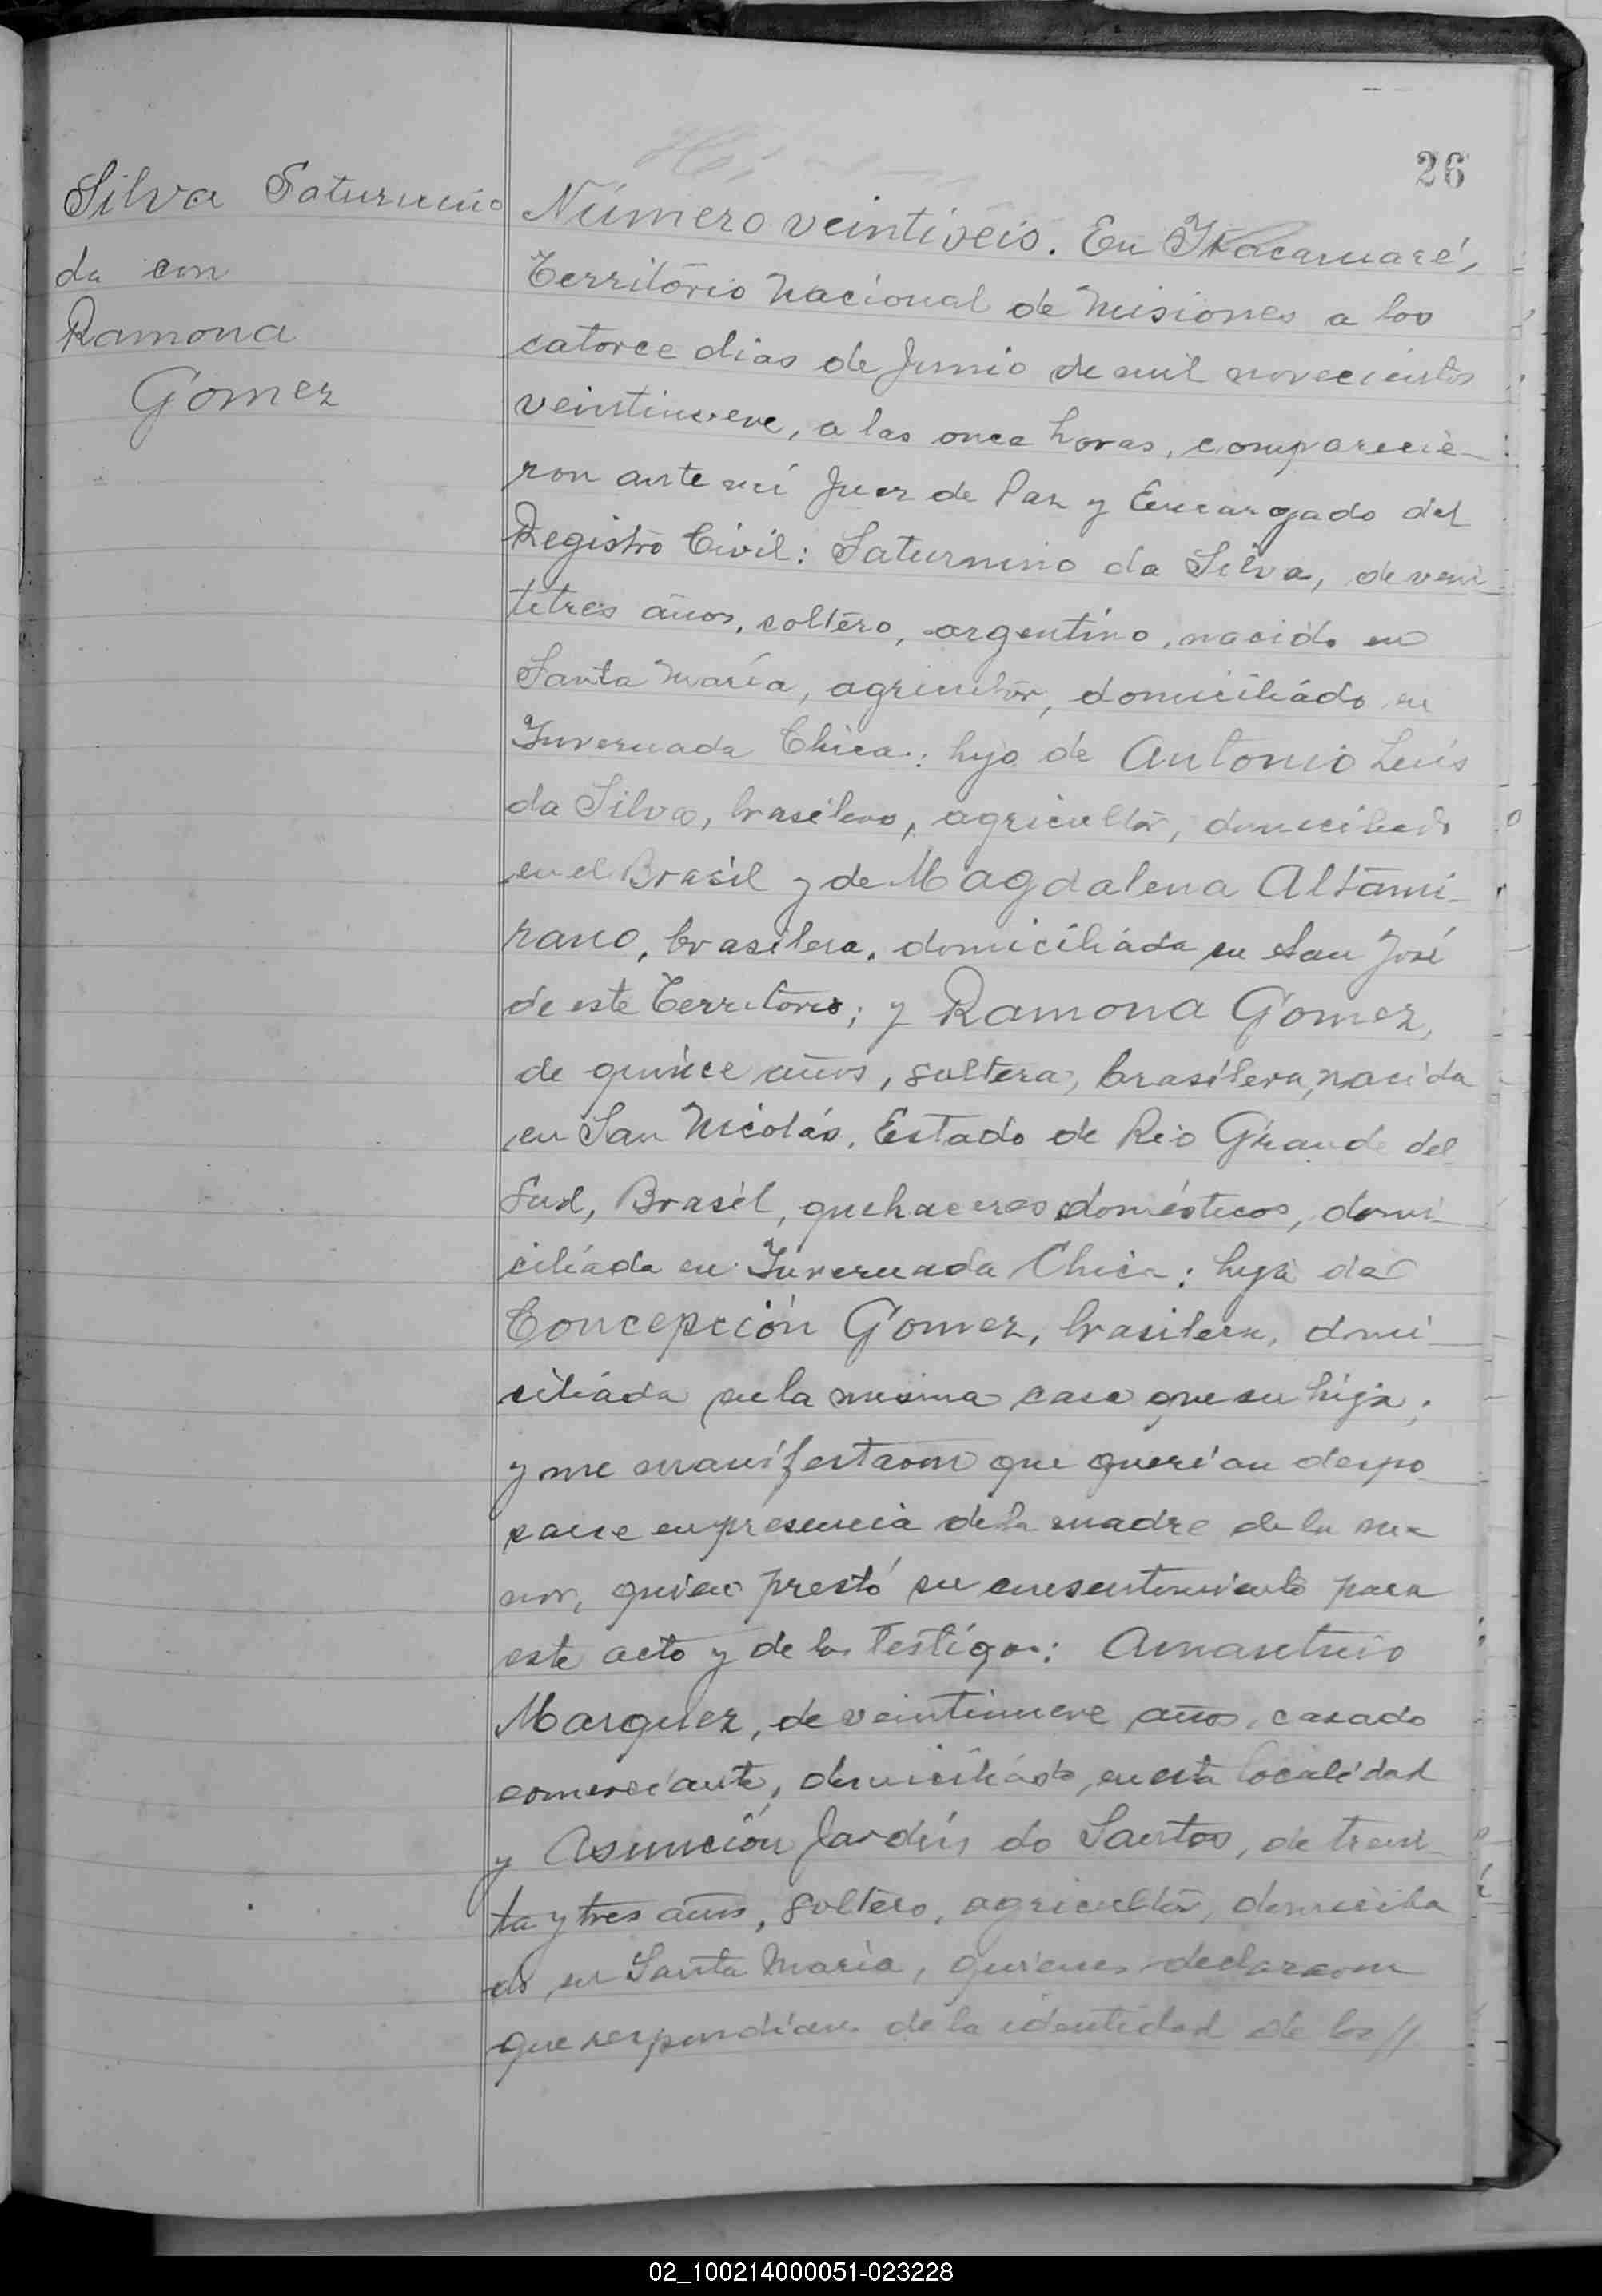 26
Silva Saturnino
da con
Ramona
Gomez
Número veintiseis. En Itacaruaré,
Territorio Nacional de Misiones a los
catorce dias de Junio de mil novecientos
veintinueve, a las once horas, comparecie-
ron ante mí Juez de Paz y Encargado del
Registro Civil: Saturnino da Silva, de vein-
titres años, soltero, argentino, nacido en
Santa María, agricultor, domiciliado en
Invernada Chica: hijo de Antonio Luis
da Silva, brasilero, agricultor, domiciliado
en el Brasil y de Magdalena Altami-
rano, brasilera, domiciliada en San José
de este Territorio; y Ramona Gomez,
de quince años, soltera, brasilera, nacida
en San Nicolás, Estado de Rio Grande del
Sud, Brasil, quehaceres domésticos, domi-
ciliada en Invernada Chica: hija de
Concepción Gomez, brasilera, domi-
ciliada en la misma casa que su hija;
y me manifestaron que querían despo-
sarse en presencia de la madre de la me-
nor, quien prestó su consentimiento para
este acto y de los testigos:
Marquez, de veintinueve años, casado
comerciante, domiciliado en esta localidad
y Asunción Jardín do Santos, de trein-
ta y tres años, soltero, agricultor, domicilia
do en Santa María, quienes declararon
que respondían de la identidad de los //
02_100214000051-023228